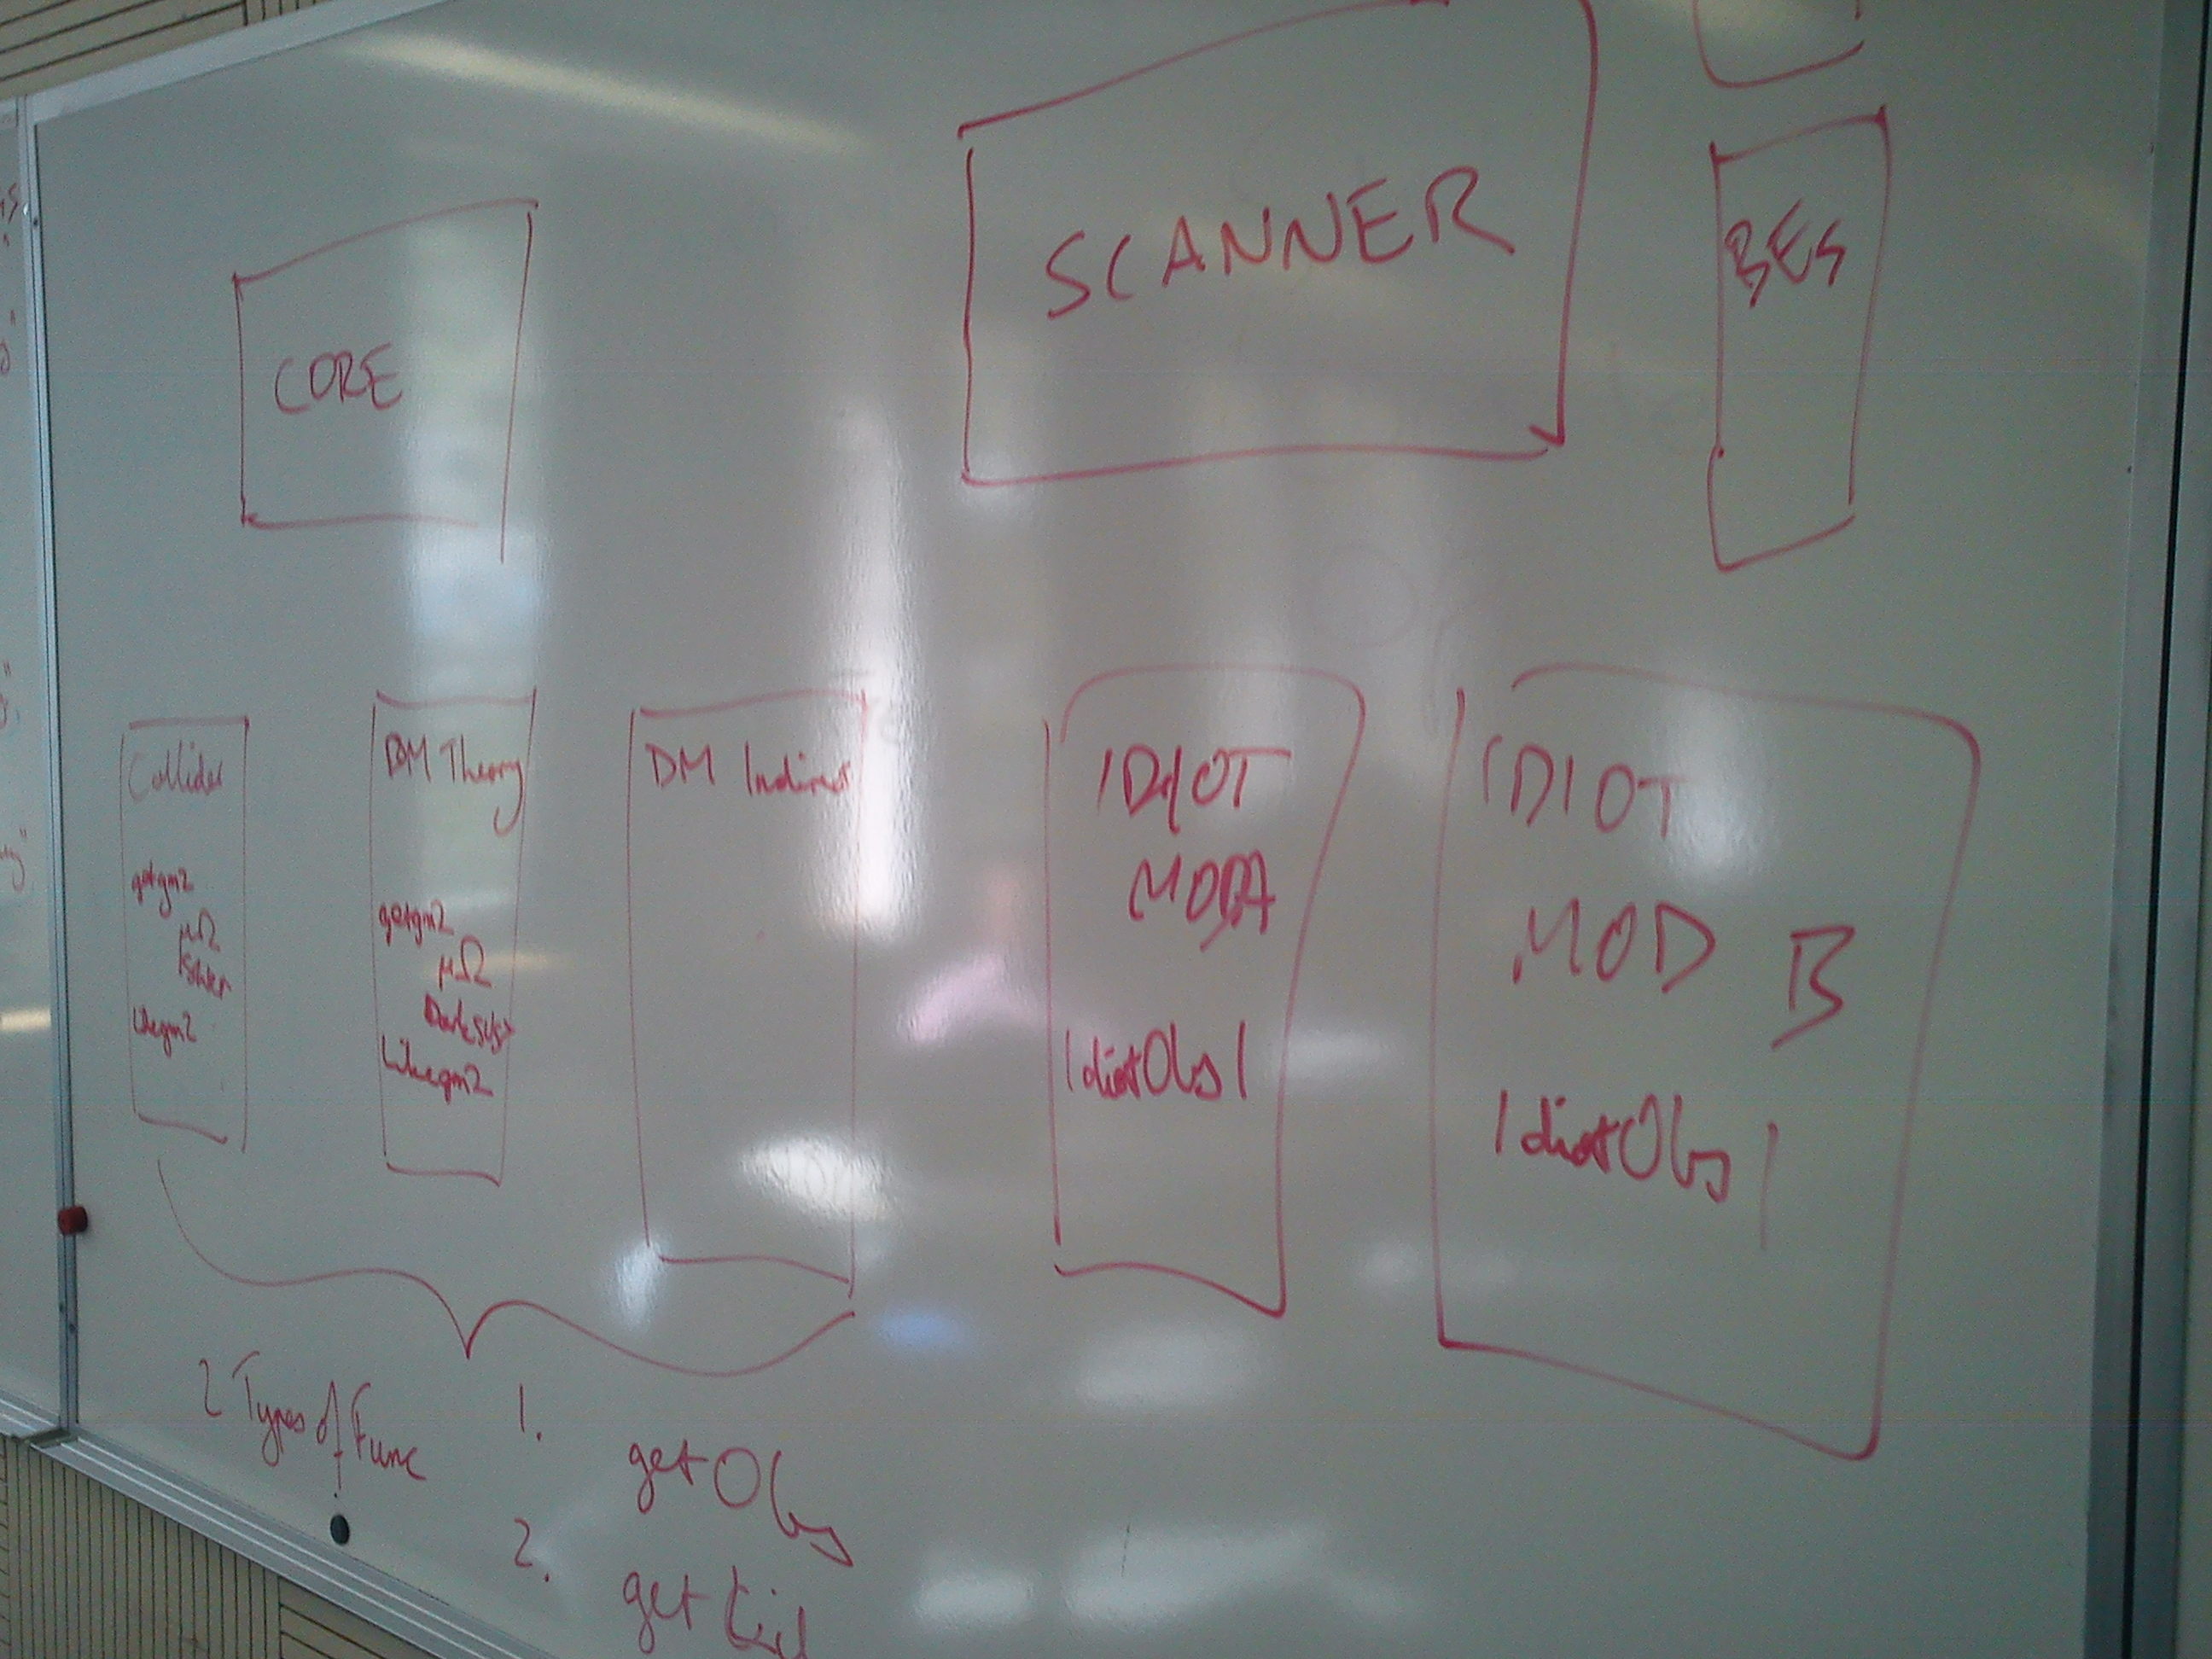 SCANNER
BES
CORE
Collider
getgm2
μΩ
likegm2
DM Theory
getgm2
μΩ
DarkSusy
Likegm2
DM Indirect
IDIOT
MOD A
IdiotObs1
IDIOT
MOD B
IdiotObs1
2 Types of Func
1. getObs
2. get